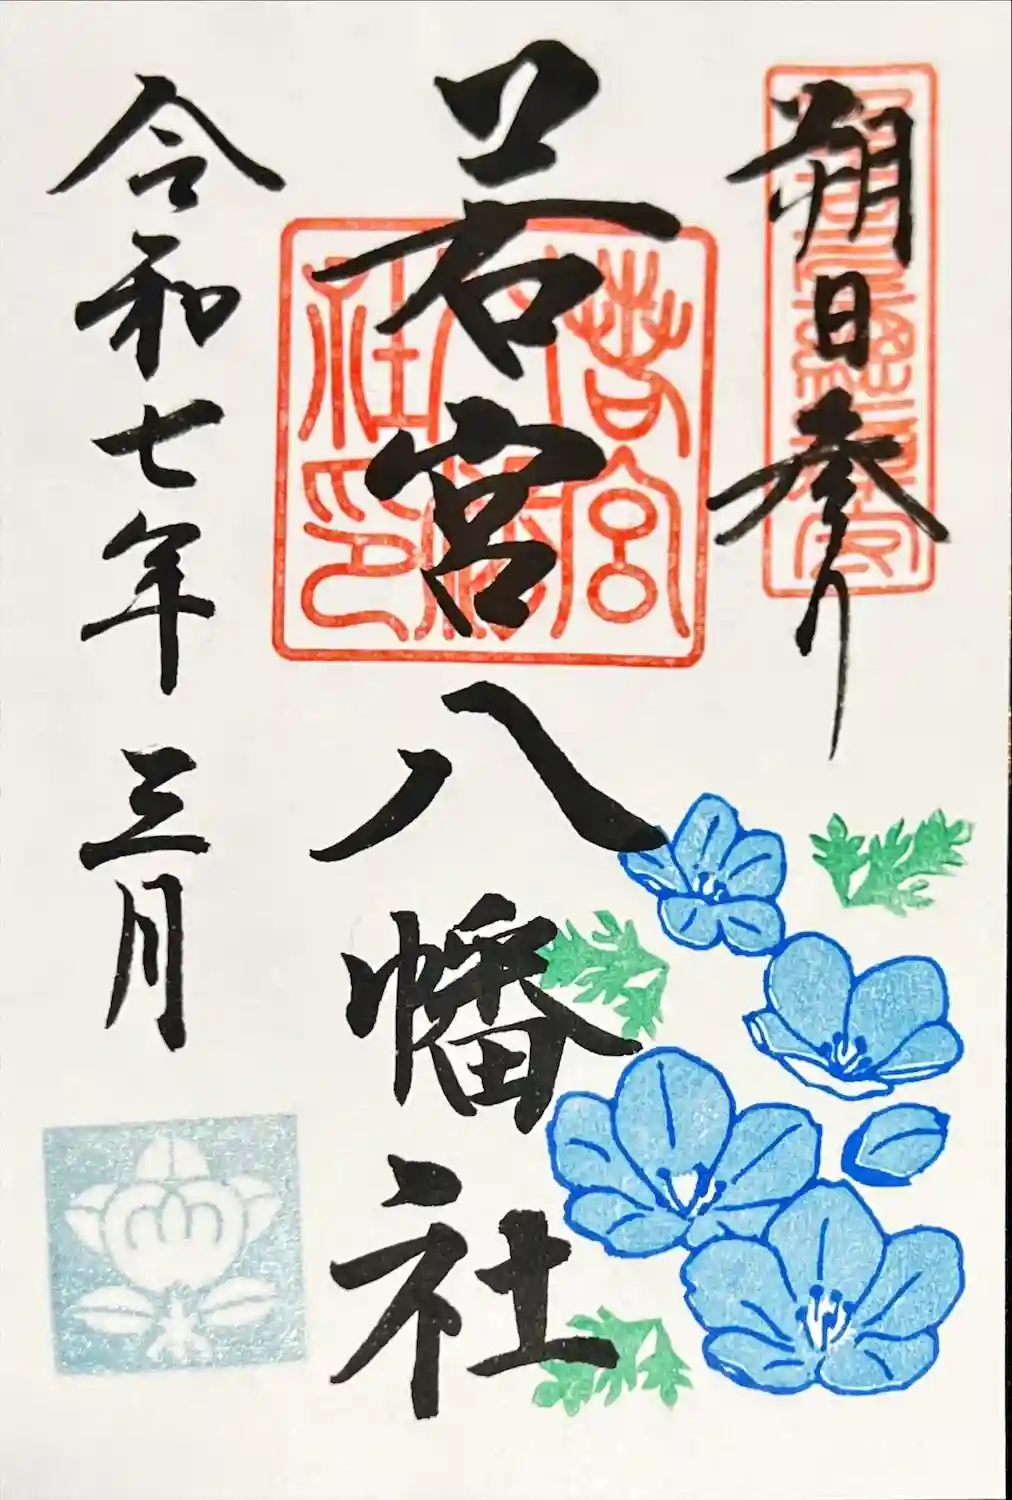 朔日参り
若宮八幡社
令和七年三月
若宮八幡社印